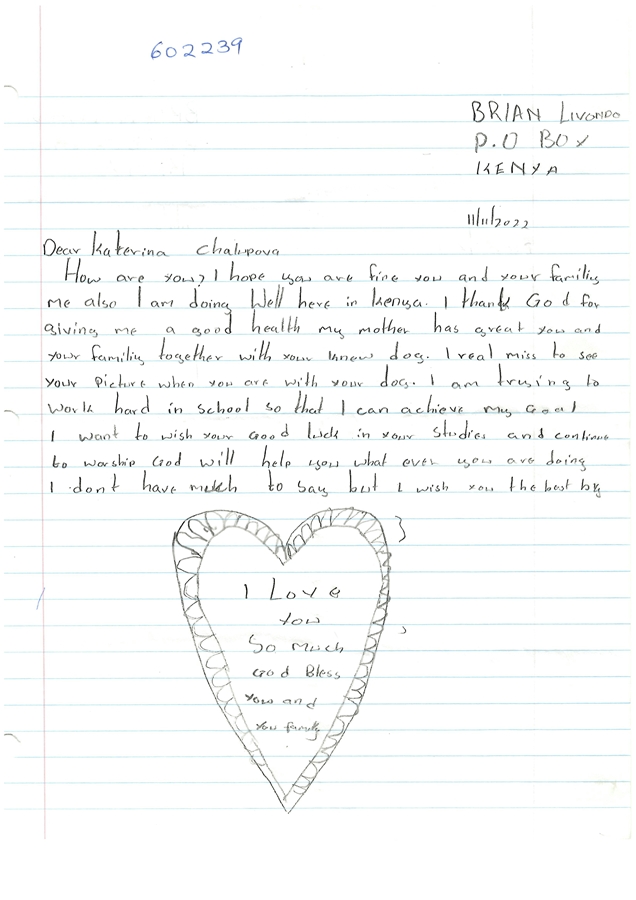 602239
BRIAN LIVONDO
P.O BOX
KENYA
11/11/2022
Dear Katerina Chalupova
How are you? I hope you are fine you and your familiy
me also I am doing Well here in Kenya. I thank God for
giving me a good health my mother has great you and
your familiy together with your knew dog. I real miss to see
your Picture when you are with your dog. I am trying to
work hard in school so that I can achieve my Goal
I want to wish your Good luck in your Studies and continue
to worship God will help you what ever you are doing
I dont have much to say but I wish you the best by
I Love
you
So much
God Bless
you and
you family